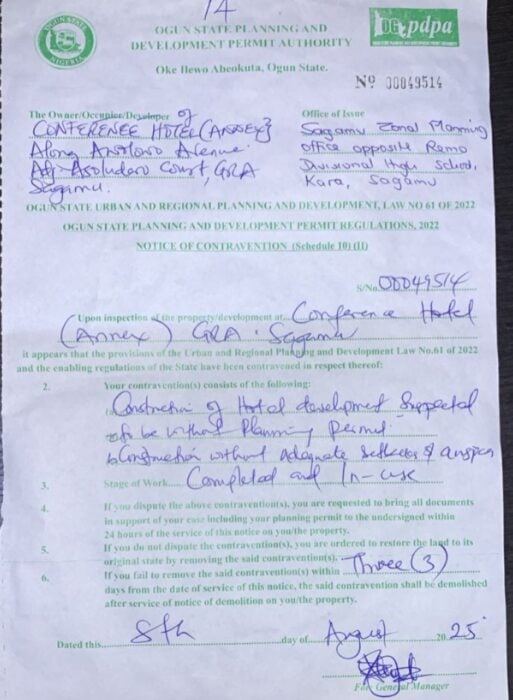 14
OGUN STATE
NIGERIA
OGUN STATE PLANNING AND
DEVELOPMENT PERMIT AUTHORITY
Oke Ilewo Abeokuta, Ogun State.
OG pdpa
No 00049514
The Owner/Occupier/Developer of
CONFERENCE HOTEL (ANNEX)
Along Avenue
Adj Asoludero Court, GRA
Sagamu.
Office of Issue
Sagamu Zonal Planning
office opposite Remo
Divisional High School,
Kara, Sagamu
OGUN STATE URBAN AND REGIONAL PLANNING AND DEVELOPMENT, LAW NO 61 OF 2022
OGUN STATE PLANNING AND DEVELOPMENT PERMIT REGULATIONS, 2022
NOTICE OF CONTRAVENTION (Schedule 10) (II)
S/No. 00049514
Upon inspection of the property/development at Conference Hotel
(Annex) GRA. Sagamu
it appears that the provisions of the Urban and Regional Planning and Development Law No.61 of 2022
and the enabling regulations of the State have been contravened in respect thereof:
2. Your contravention(s) consists of the following:
Construction of Hotel development Suspected
to be without Planning Permit
Construction without Adequate setbacks &
3. Stage of Work Completed and In-use
4. If you dispute the above contravention(s), you are requested to bring all documents
in support of your case including your planning permit to the undersigned within
24 hours of the service of this notice on you/the property.
5. If you do not dispute the contravention(s), you are ordered to restore the land to its
original state by removing the said contravention(s).
6. If you fail to remove the said contravention(s) within Three (3)
days from the date of service of this notice, the said contravention shall be demolished
after service of notice of demolition on you/the property.
Dated this 8th day of August 2025
For: General Manager